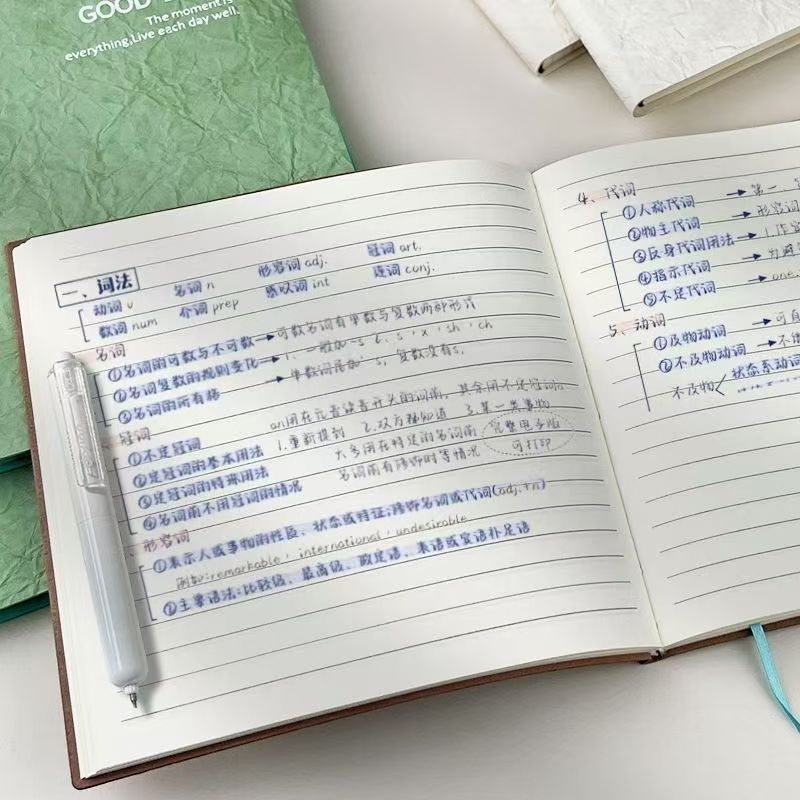 GOOD
The moment is
everything,Live each day well.
一、词法
动词 v 名词 n 形容词 adj. 冠词 art.
数词 num 介词 prep 感叹词 int 连词 conj.
名词
①名词的可数与不可数→可数名词有单数与复数两种形式
②名词复数的规则变化→1、一般加-s 2、s，x，sh，ch
③名词的所有格→单数词尾加's，复数没有s，
冠词
①不定冠词 an用在元音读音开头的词前，其余用不定冠词a
②定冠词的基本用法 1.重新提到 2.双方都知道 3.某一类事物
③定冠词的特殊用法 大多用在特定的名词前
④名词前不用冠词的情况 名词前有修饰时等情况
完整电子版
可打印
形容词
①表示人或事物的性质、状态或特征;修饰名词或代词(adj.+n)
例如:remarkable，international，undesirable
②主要语法:比较级、最高级、做定语、表语或宾语补足语
4、代词
①人称代词→第一、
②物主代词→形容词
③反身代词用法→1.作
④指示代词→
⑤不定代词→one,
5、动词
①及物动词→可
②不及物动词→不
不及物<状态系动词